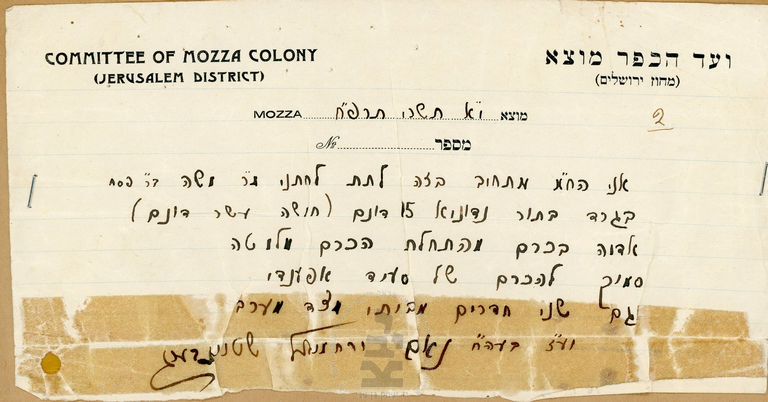 COMMITTEE OF MOZZA COLONY
(JERUSALEM DISTRICT)
ועד הכפר מוצא
(מחוז ירושלים)
MOZZA י"א תשרי תרפ"ח מוצא
2
№ מספר
אני הח"מ מתחיב בזה לתת לחתני מר משה בר פסח
בגדר בתור נדוניא 15 דונם (חמשה עשר דונם)
אדמה בכרם מהתחלת הכרם מלמטה
סמוך להכרם של סעיד אפענדי
וגם שני חדרים מביתי מצד מערב
ועז בעה"ח נאם ירחמיאל שטיינברג